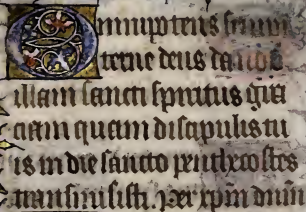 Omnipotens sempi
terne deus da nobis
illam sancti spiritus gra
ciam quam discipulis tu
is in die sancto penthecostes
transmisisti. Per xpm dnm